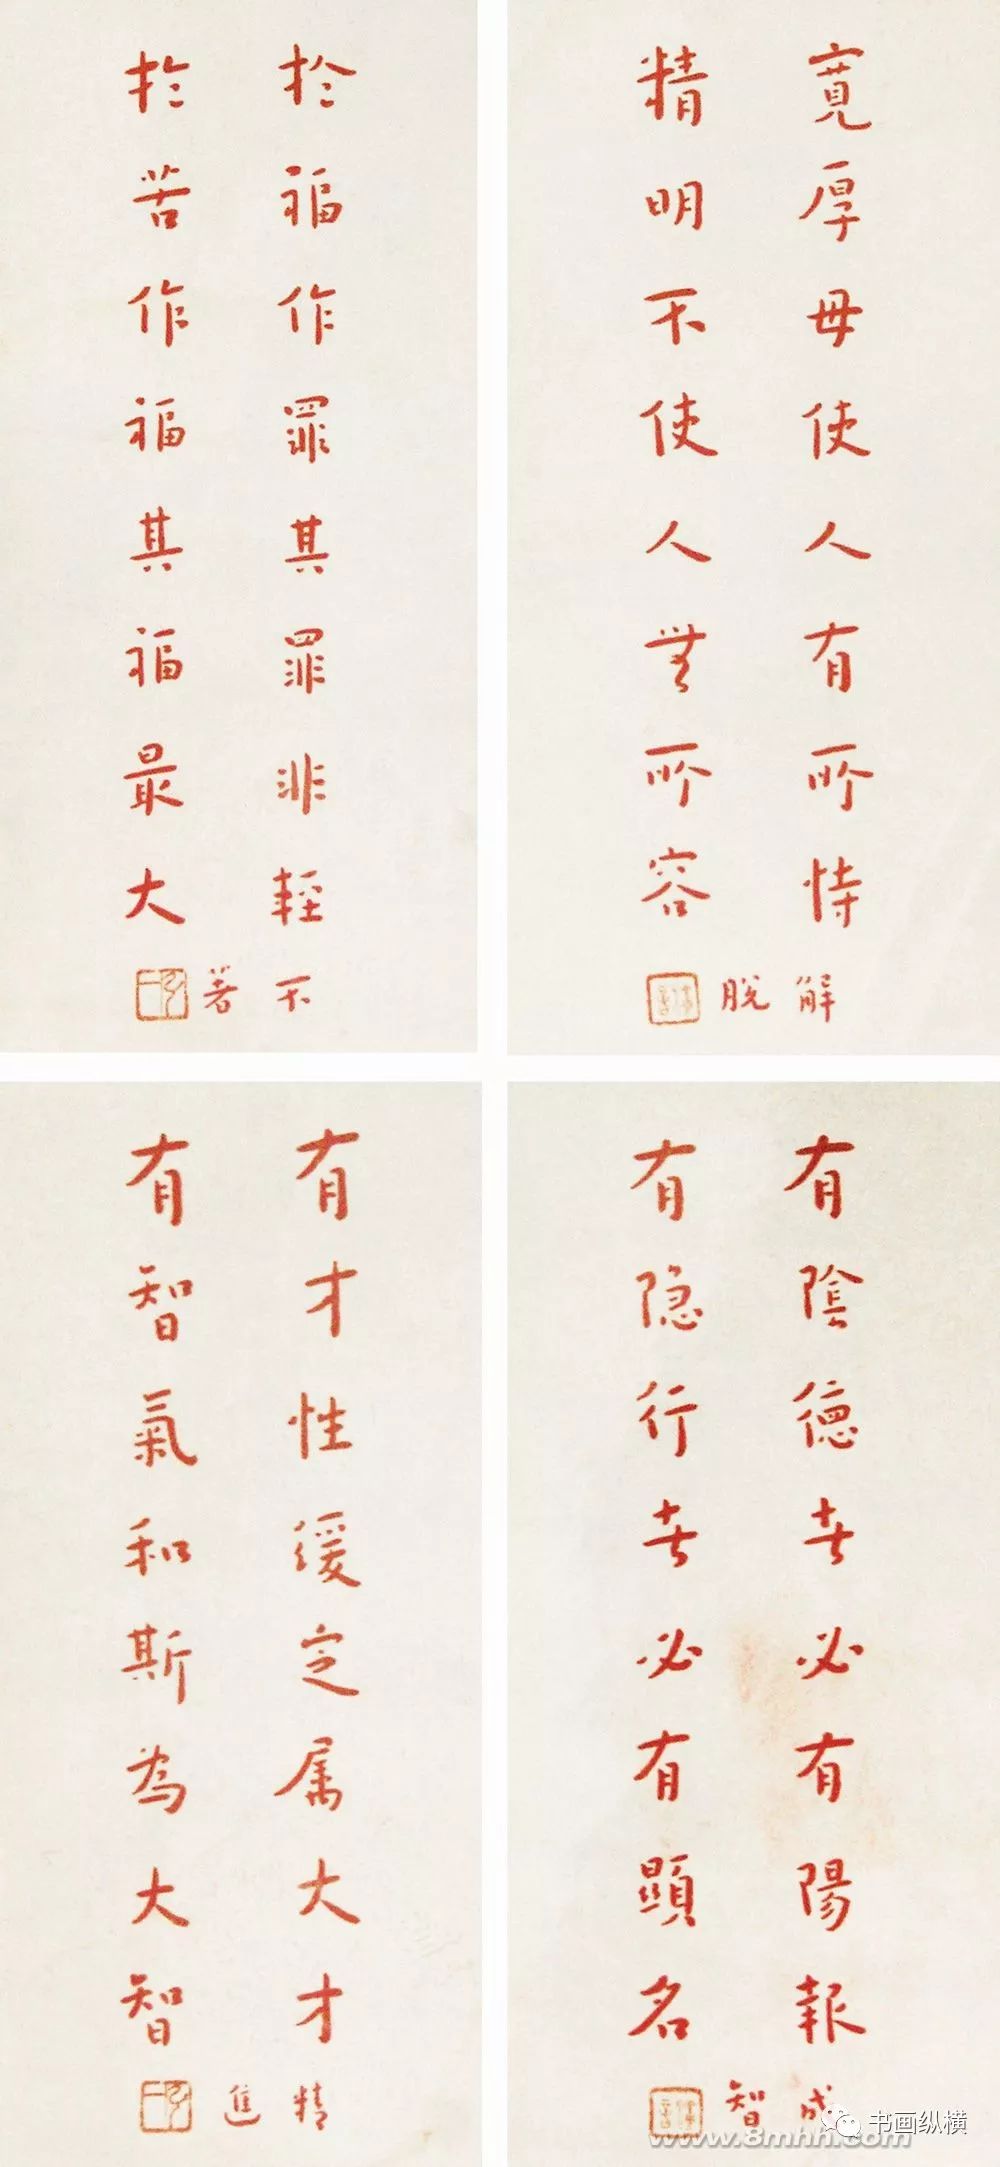 寬厚毋使人有所恃
精明不使人無所容
解脱
於福作罪其罪非輕
於苦作福其福最大
不著
有陰德者必有陽報
有隐行者必有顯名
成智
有才性缓定属大才
有智氣和斯為大智
精進
书画纵横
www.8mhh.com